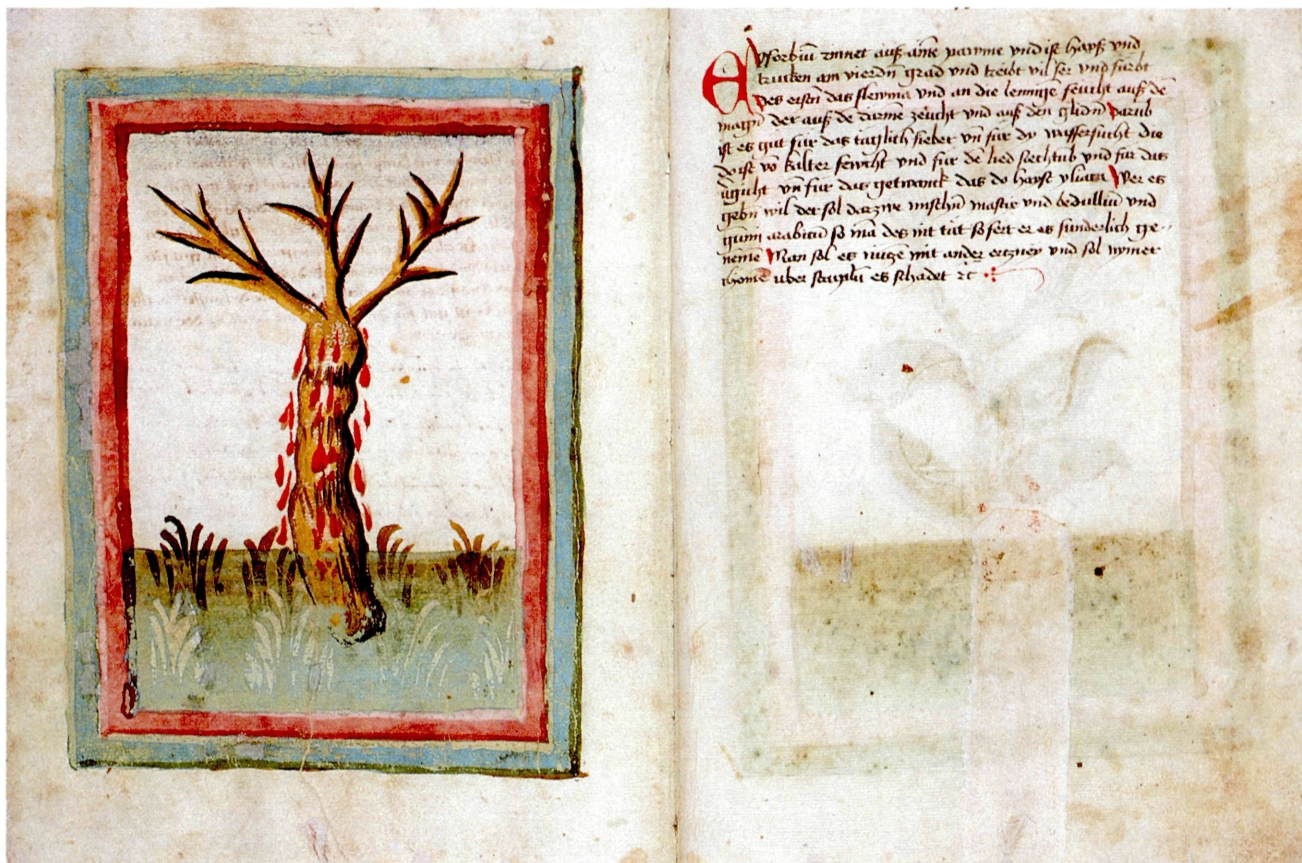 Euforbiu rinnet auß aine pawme vnd ist hayß vnd
trucken am vierdn grad vnd treibt vil ser vnd fürbt
des ersten das flewma vnd an die lemige feucht auß de
magn der auß de dirme zeucht vnd auß den glidn Darub
ist es gut für das täglich fieber vn für dy wassersucht die
do ist vo kalter fewcht vnd für de lied siechtub vnd für das
gegicht vn für das getwanck das do hayst yliaca Wer es
gebn wil der sol darzwe mischn mastix vnd bedelliu vnd
gumi arabicu so ma des nit tut so fert er es sunderlich ge
neme Man sol es nütze mit ander ertzney vnd sol nymer
kome vber es schadet rc